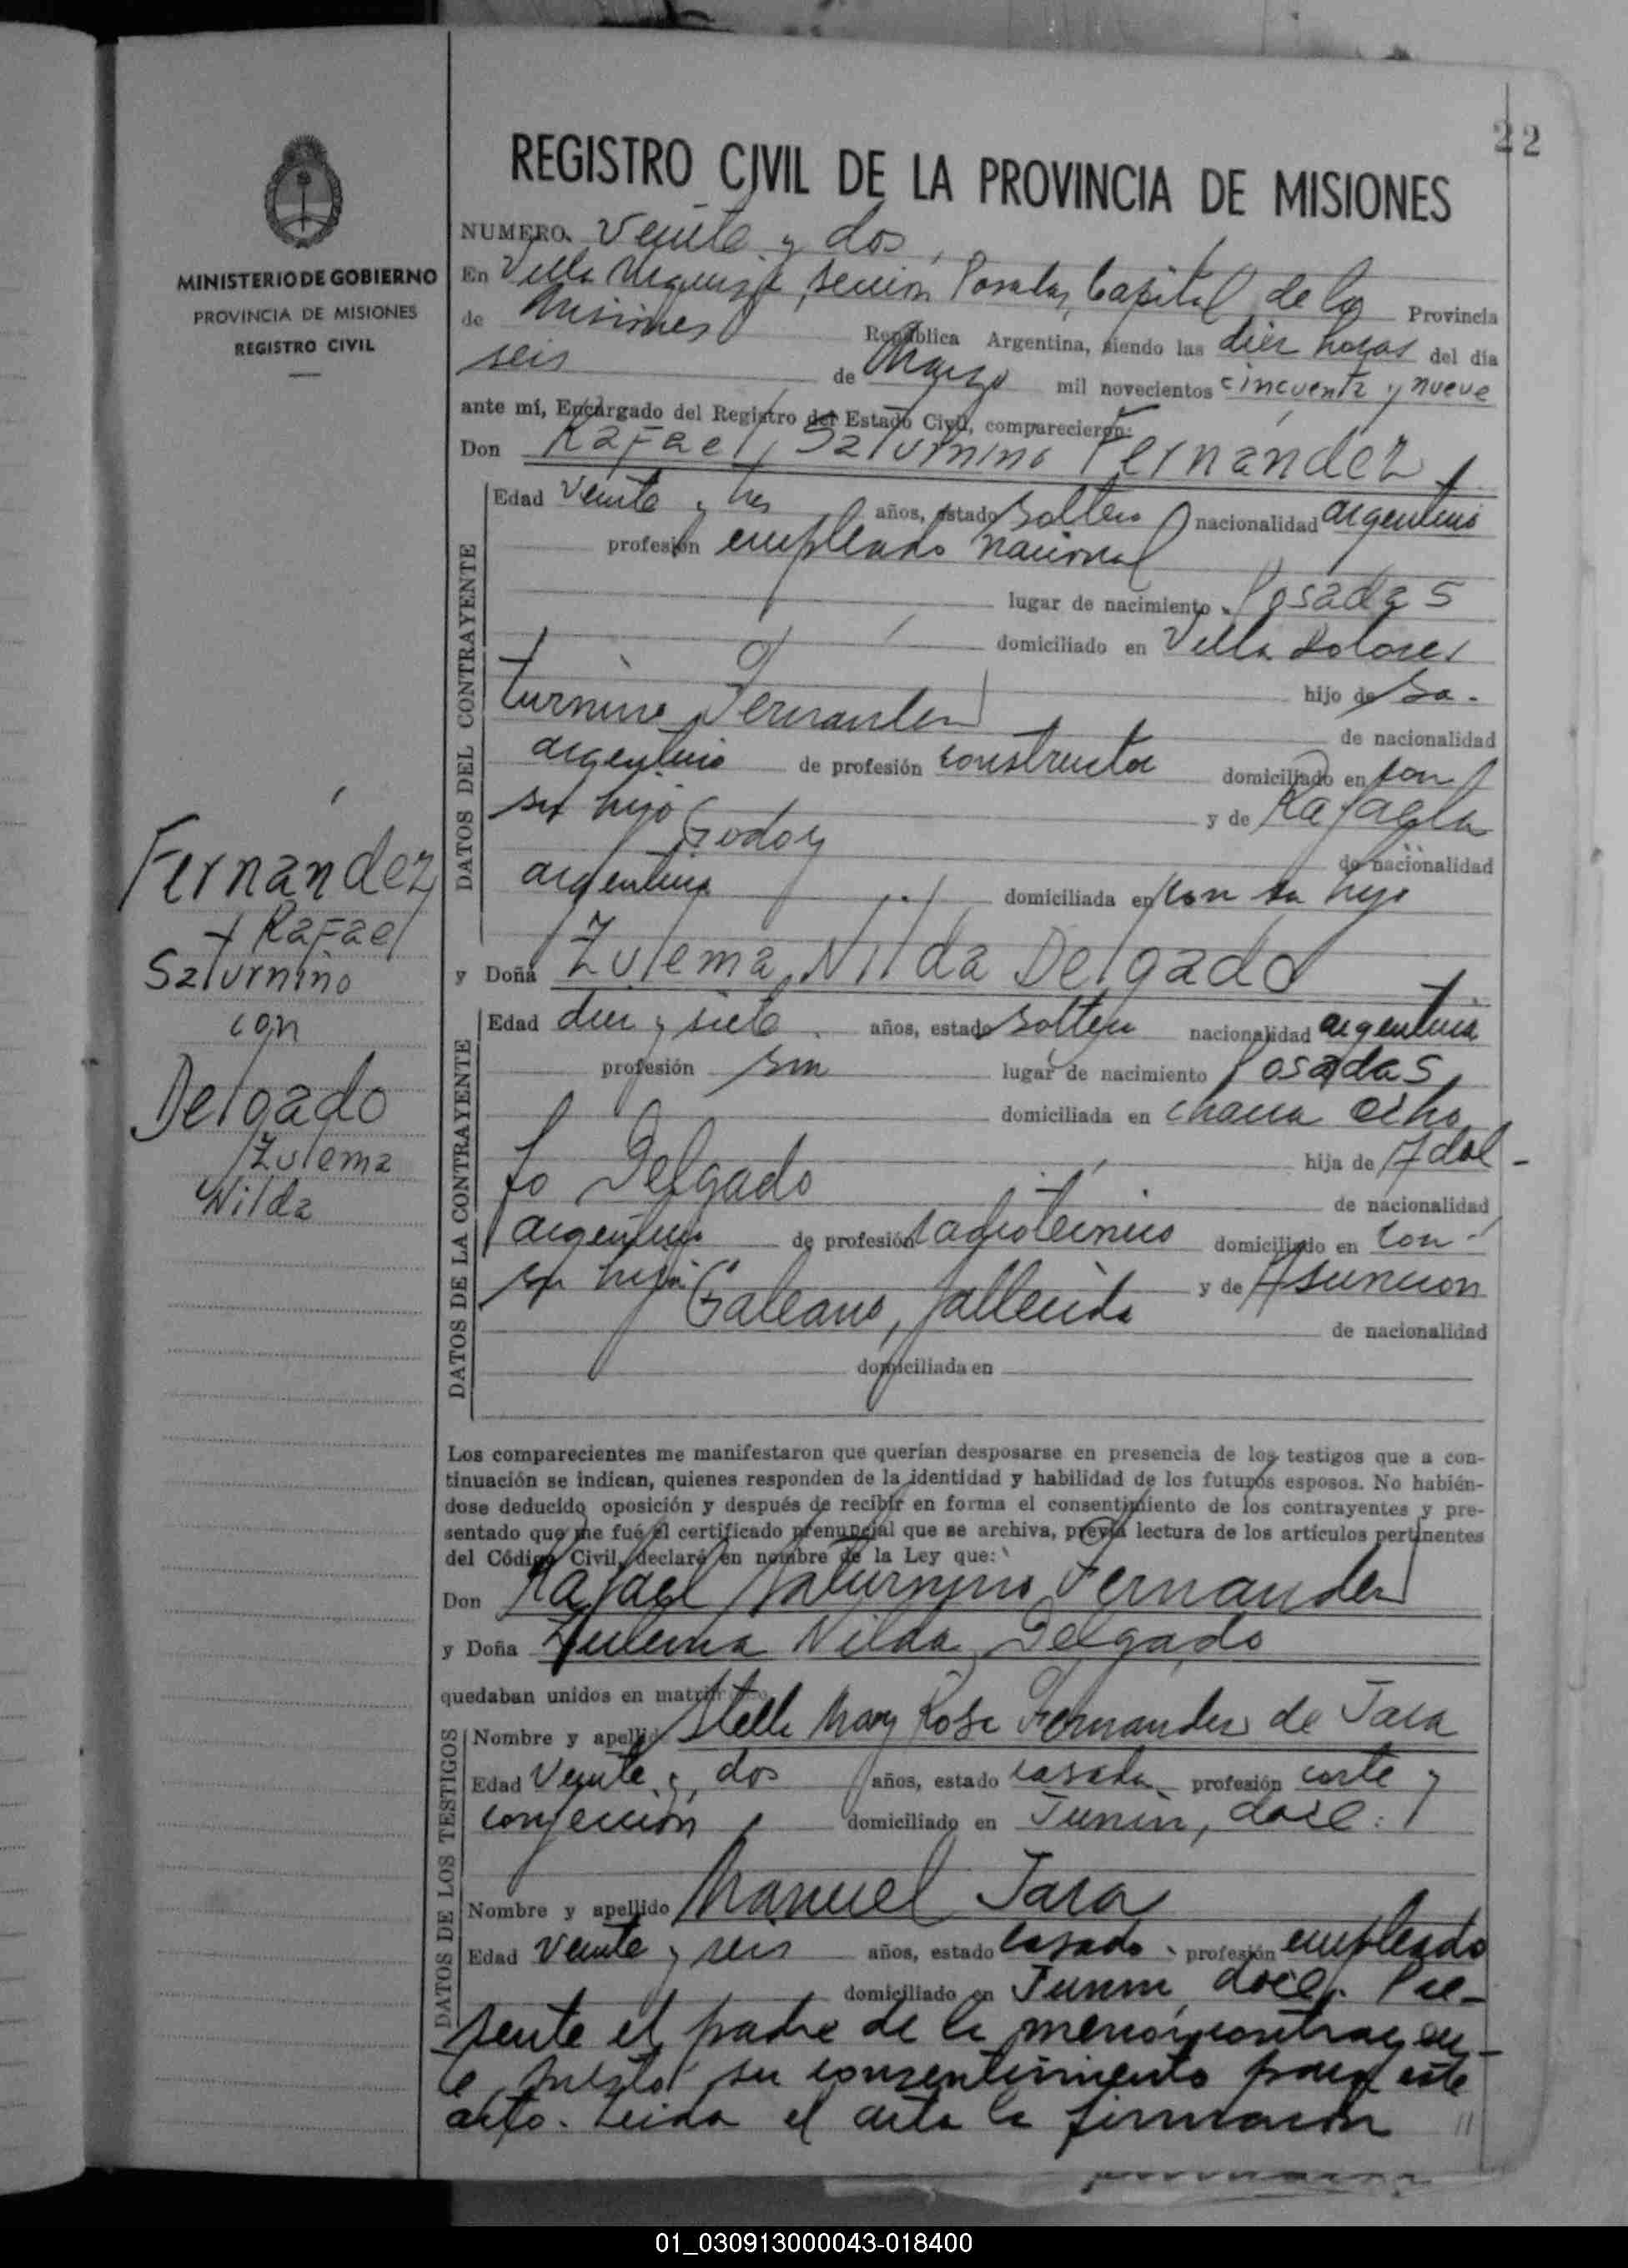 22
REGISTRO CIVIL DE LA PROVINCIA DE MISIONES
MINISTERIO DE GOBIERNO
PROVINCIA DE MISIONES
REGISTRO CIVIL
NUMERO. Veinte y dos
En Villa Urquiza, sección Posadas, Capital de la Provincia
de Misiones República Argentina, siendo las diez horas del día
seis de Marzo mil novecientos cincuenta y nueve
ante mí, Encargado del Registro del Estado Civil, comparecieron:
Don Rafael Saturnino Fernández
DATOS DEL CONTRAYENTE
Edad Veinte y tres años, estado soltero nacionalidad argentino
profesión empleado nacional
lugar de nacimiento Posadas
domiciliado en Villa Dolores
hijo de Sa-
turnino Fernandez
de nacionalidad
argentino de profesión constructor domiciliado en con
su hijo y de Rafaela
Godoy
de nacionalidad
argentina domiciliada en con su hijo
Fernández
Rafael
Saturnino
con
Delgado
Zulema
Nilda
y Doña Zulema Nilda Delgado
DATOS DE LA CONTRAYENTE
Edad diez y siete años, estado soltera nacionalidad argentina
profesión sin lugar de nacimiento Posadas
domiciliada en chacra ocho
hija de Adol-
fo Delgado
de nacionalidad
argentino de profesión radiotecnico domiciliado en con
su hija y de Asuncion
Galeano, fallecida
de nacionalidad
domiciliada en
Los comparecientes me manifestaron que querían desposarse en presencia de los testigos que a con-
tinuación se indican, quienes responden de la identidad y habilidad de los futuros esposos. No habién-
dose deducido oposición y después de recibir en forma el consentimiento de los contrayentes y pre-
sentado que me fué el certificado prenupcial que se archiva, previa lectura de los artículos pertinentes
del Código Civil, declaré en nombre de la Ley que:
Don Rafael Saturnino Fernandez
y Doña Zulema Nilda Delgado
quedaban unidos en matrimonio
DATOS DE LOS TESTIGOS
Nombre y apellido Stella Mary Rosa Fernandez de Jara
Edad Veinte y dos años, estado casada profesión corte y
confección domiciliado en Junin, doce.
Nombre y apellido Manuel Jara
Edad Veinte y seis años, estado casado profesión empleado
domiciliado en Junin, doce. Pre-
sente el padre de la menor contrayen-
te, prestó su consentimiento para este
acto. Leida el acta la firmaron //
01_030913000043-018400